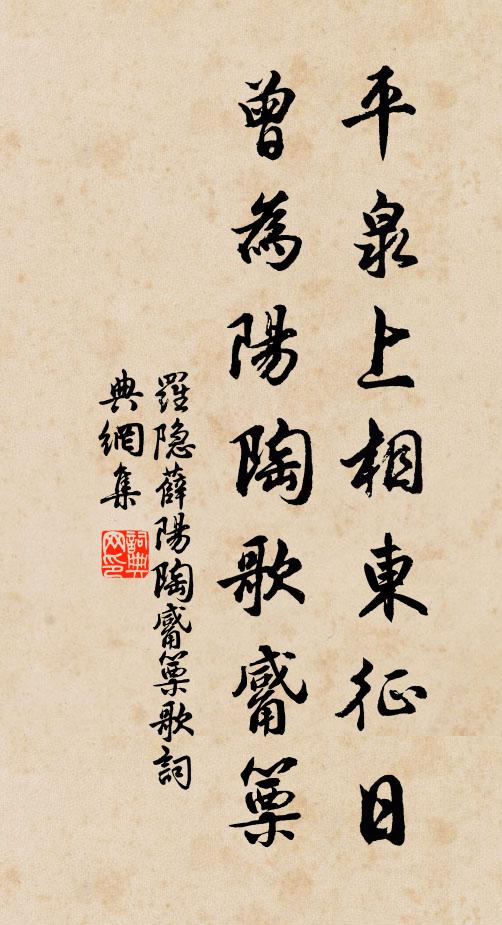 平泉上相東征日
曾為陽陶歌觱篥
羅隐薛陽陶觱篥歌詞
典網集
詞典
网印